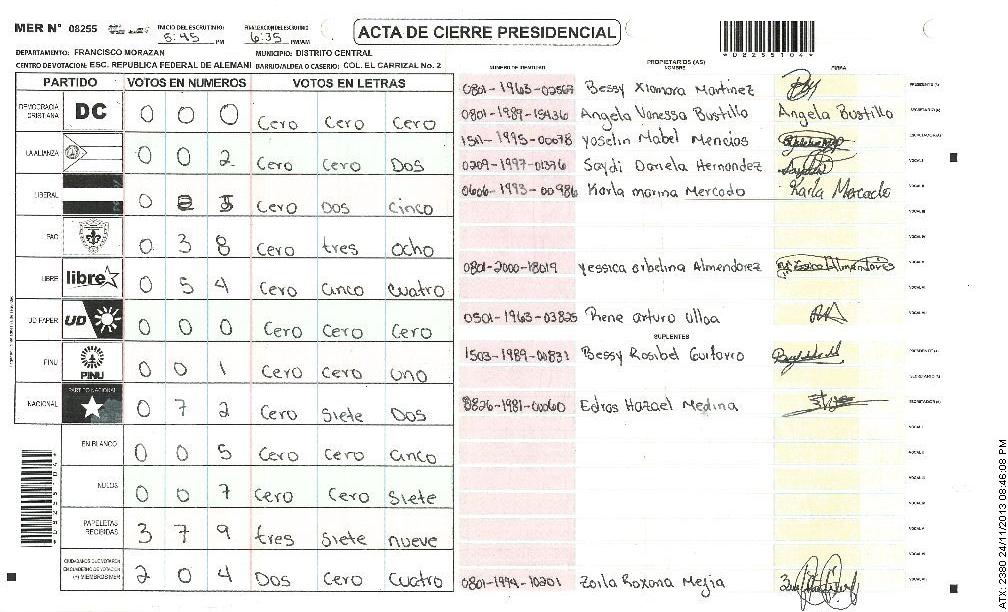 MER N° 08255 INICIO DEL ESCRUTINIO 5:45 PM FINALIZACION DEL ESCRUTINIO 6:35 PM/AM
ACTA DE CIERRE PRESIDENCIAL
*08255104*
DEPARTAMENTO: FRANCISCO MORAZAN MUNICIPIO: DISTRITO CENTRAL
CENTRO DE VOTACION: ESC. REPUBLICA FEDERAL DE ALEMANI BARRIO/ALDEA O CASERIO: COL. EL CARRIZAL No. 2
PARTIDO VOTOS EN NUMEROS VOTOS EN LETRAS
DEMOCRACIA CRISTIANA DC 0 0 0 Cero Cero Cero
LA ALIANZA 0 0 2 Cero Cero Dos
LIBERAL 0 2 5 Cero Dos Cinco
PAC 0 3 8 Cero tres ocho
LIBRE libre 0 5 4 Cero Cinco Cuatro
UD FAPER UD 0 0 0 Cero Cero Cero
PINU PINU 0 0 1 Cero Cero uno
NACIONAL PARTIDO NACIONAL 0 7 2 Cero Siete Dos
EN BLANCO 0 0 5 Cero Cero Cinco
NULOS 0 0 7 Cero Cero Siete
PAPELETAS RECIBIDAS 3 7 9 tres Siete nueve
CIUDADANOS QUE VOTARON EN CUADERNO DE VOTACION (+) MIEMBROS MER 2 0 4 Dos Cero Cuatro
NUMERO DE IDENTIDAD PROPIETARIOS (AS) NOMBRE FIRMA
0801-1963-02567 Bessy Xiomara Martinez PRESIDENTE (A)
0801-1989-15436 Angela Vanessa Bustillo Angela Bustillo SECRETARIO (A)
1511-1995-00078 Yoselin Mabel Mencias ESCRUTADOR (A)
0209-1997-01376 Saydi Daniela Hernandez VOCAL I
0606-1993-00986 Karla marina Mercado Karla Mercado VOCAL II
VOCAL III
VOCAL IV
0801-2000-18019 Yessica arbelina Almendarez VOCAL V
VOCAL VI
0501-1963-03825 Rene arturo Ulloa VOCAL VII
SUPLENTES
1503-1989-00831 Bessy Rosibel Guifarro PRESIDENTE (A)
SECRETARIO (A)
0826-1981-00060 Edras Hazael Medina ESCRUTADOR (A)
VOCAL I
VOCAL II
VOCAL III
VOCAL IV
VOCAL V
VOCAL VI
0801-1994-10201 Zoila Roxana Mejia VOCAL VII
*08255104*
ATX: 2380 24/11/2013 08:46:08 PM